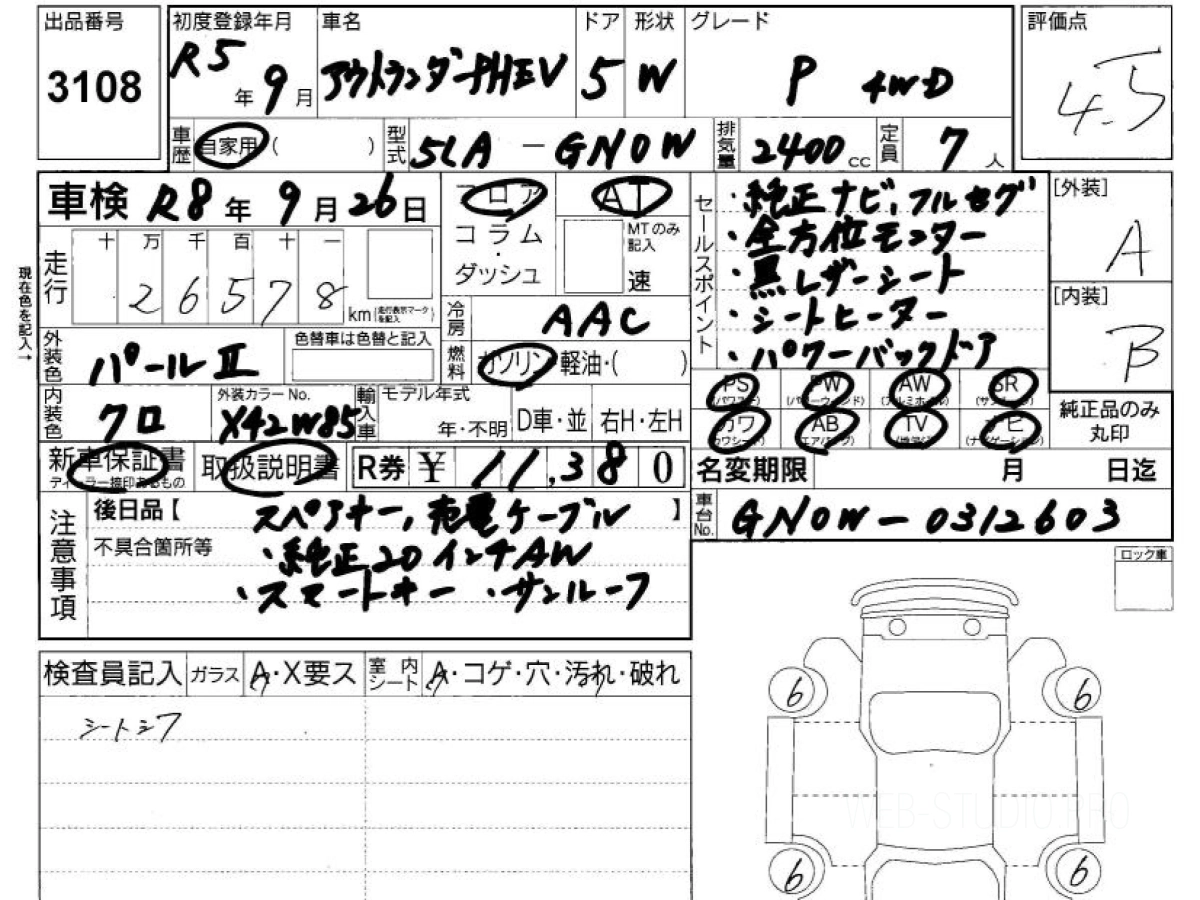 出品番号 3108
初度登録年月 R5年9月
車名 アウトランダーPHEV
ドア 5
形状 W
グレード P 4WD
評価点 4.5
車歴 自家用( )
型式 5LA-GN0W
排気量 2400cc
定員 7人
車検 R8年9月26日
フロア
コラム・ダッシュ
AT
MTのみ記入
速
セールスポイント
・純正ナビ, フルセグ
・全方位モニター
・黒レザーシート
・シートヒーター
・パワーバックドア
[外装] A
[内装] B
現在色を記入→
走行 十万千百十一
26578 km (走行表示マークを記入)
冷房 AAC
外装色 パールⅡ
色替車は色替と記入
燃料 ガソリン・軽油・( )
内装色 クロ
外装カラーNo. X42W85
輸入車
モデル年式 年・不明
D車・並
右H・左H
PS (パワステ) PW (パワーウィンド) AW (アルミホイル) SR (サンルーフ)
カワ (カワシート) AB (エアバッグ) TV ナビ (ナビゲーション)
純正品のみ丸印
新車保証書
ディーラー捺印あるもの
取扱説明書
R券 ¥ 11,380
名変期限 月 日迄
注意事項
後日品【 スペアキー, 充電ケーブル 】
不具合箇所等
・純正20インチAW
・スマートキー ・サンルーフ
車台No. GN0W-0312603
ロック車
検査員記入
ガラス A・X要ス
室内シート A・コゲ・穴・汚れ・破れ
シートシワ
6 6
WEB-STUDIO.PRO
6 6